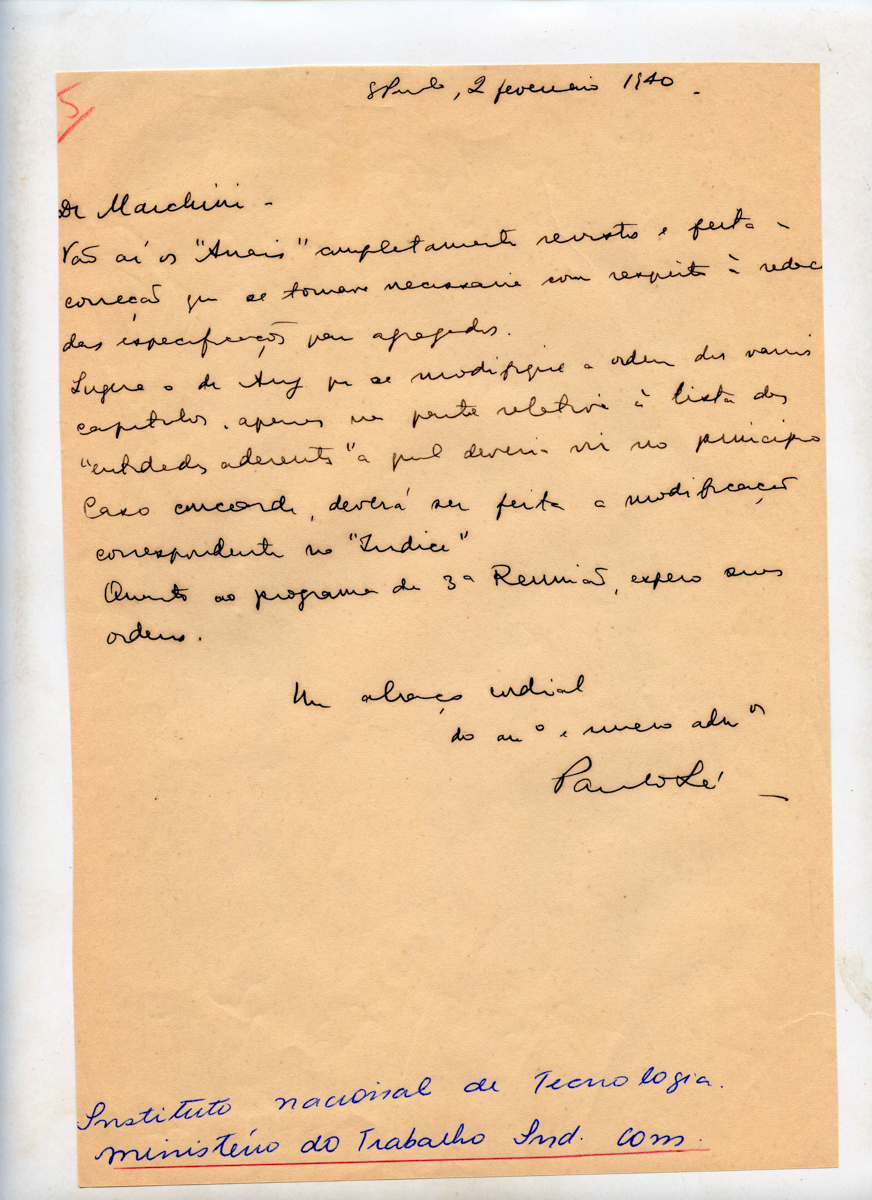 5
SPaulo, 2 fevereiro 1940.
Dr Marchini -
Vão aí os "Anais" completamente revistos e feita a
correção que se tornava necessaria com respeito à redac
das especificações para agregados.
Sugere o de Ary que se modifique a ordem dos varios
capitulos, apenas na parte relativa à lista das
"entidades aderentes" a qual deveria vir no principio
Caso concorde, deverá ser feita a modificação
correspondente no "Indice"
Quanto ao programa da 3a Reunião, espero suas
ordens.
Um abraço cordial
do amo e sincero
Paulo Sá
Instituto nacional de Tecnologia.
ministério do Trabalho Ind. com.